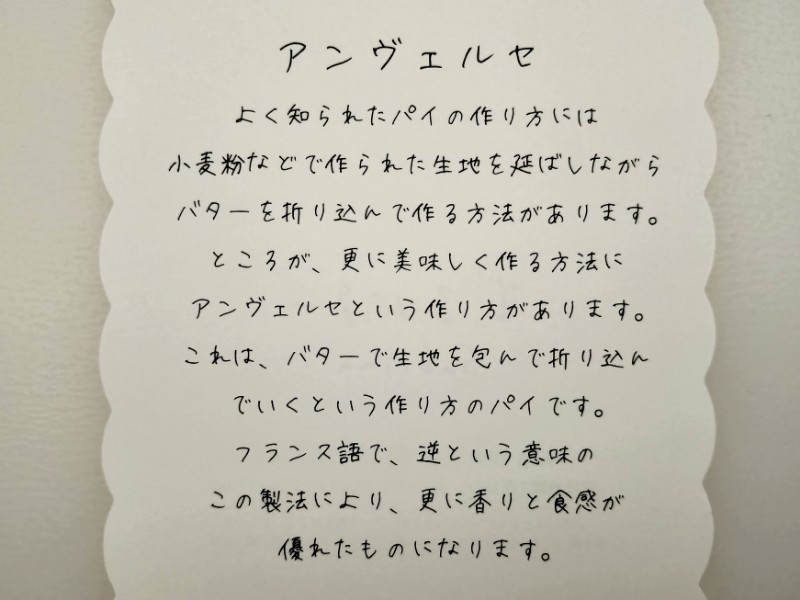 アンヴェルセ
よく知られたパイの作り方には
小麦粉などで作られた生地を延ばしながら
バターを折り込んで作る方法があります。
ところが、更に美味しく作る方法に
アンヴェルセという作り方があります。
これは、バターで生地を包んで折り込ん
でいくという作り方のパイです。
フランス語で、逆という意味の
この製法により、更に香りと食感が
優れたものになります。